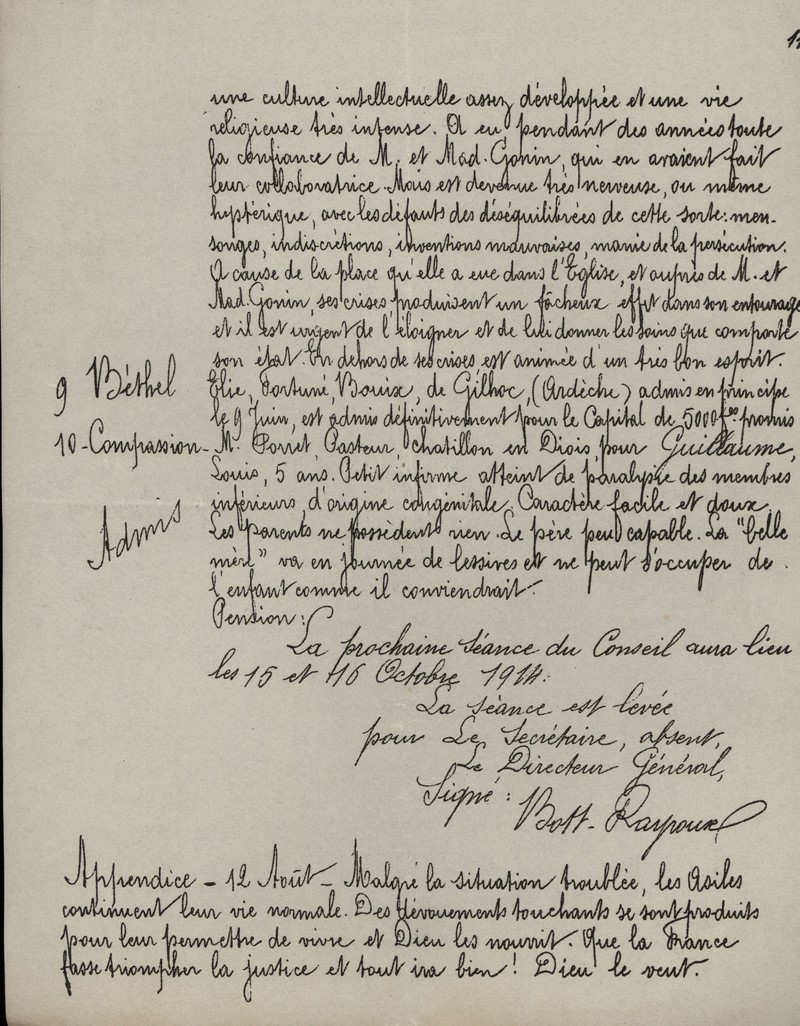 une culture intellectuelle assez développée et une vie
religieuse très intense. A eu pendant des années toute
la confiance de M. et Mad. Gonin, qui en avaient fait
leur collaboratrice. Mais est devenue très nerveuse, ou même
hystérique, avec les défauts des déséquilibrées de cette sorte: men-
songes, indiscrétions, inventions mauvaises, manie de la persécution.
A cause de la place qu'elle a eue dans l'Eglise, et auprès de M. et
Mad. Gonin, ses crises produisent un fâcheux effet dans son entourage
et il est urgent de l'éloigner et de lui donner les soins que comporte
son état. En dehors de ses crises est animée d'un très bon esprit.
9 Béthel Elie, Fortuné, Bouix, de Gilhoc, (Ardèche) admis en principe
le 9 Juin, est admis définitivement pour le Capital de 5000 f promis
10 - Compassion - M. Porret, Pasteur, chatillon en Diois, pour Guillaume,
Louis, 5 ans. Petit infirme atteint de paralysie des membres
inférieurs, d'origine congénitale. Caractère facile et doux.
Admis
Les parents ne possèdent rien. Le père peu capable. La "belle
mère" va en journée de lessives et ne peut s'occuper de
l'enfant comme il conviendrait.
Pension:
La prochaine séance du Conseil aura lieu
les 15 et 16 Octobre 1914.
La séance est levée
pour Le Secrétaire, absent,
Le Directeur Général,
Signé:
Bost-Rayroux
Appendice - 12 Août - Malgré la situation troublée, les Asiles
continuent leur vie normale. Des dévouements touchants se sont produits
pour leur permettre de vivre et Dieu les nourrit. Que la France
fasse triompher la justice et tout ira bien! Dieu le veut.